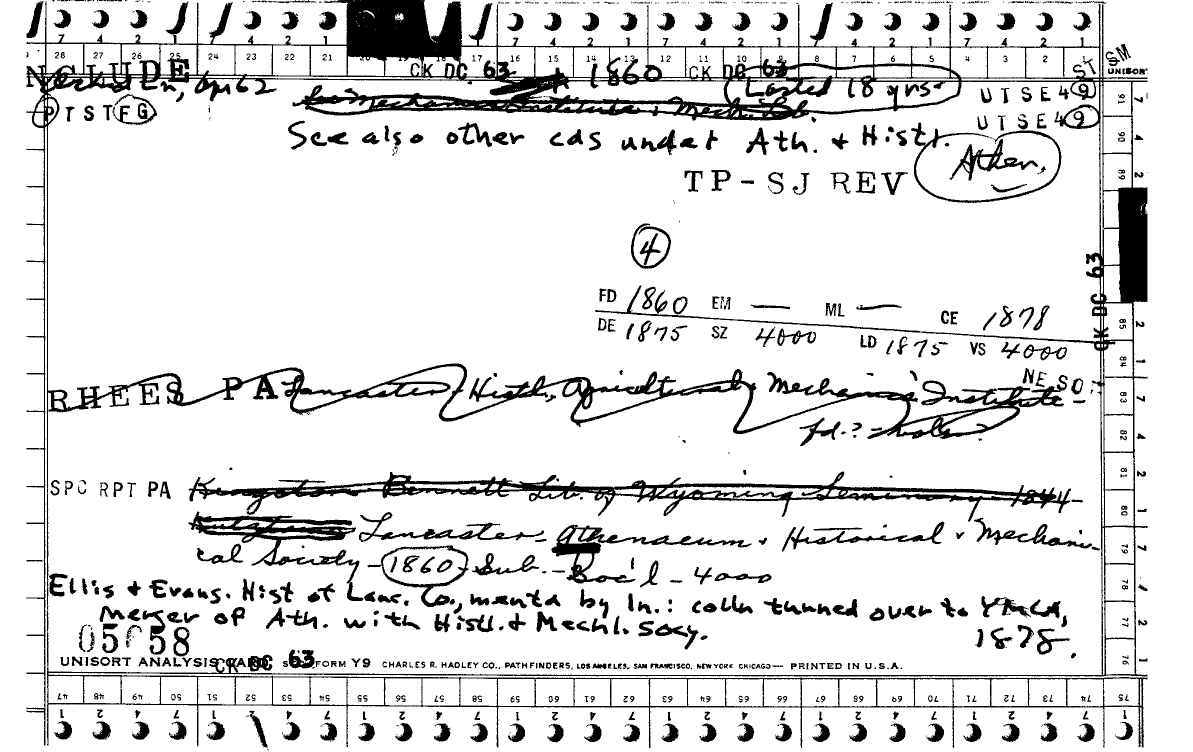 7 4 2 1 7 4 2 1 7 4 2 1 7 4 2 1
28 27 26 25 24 23 22 21 16 15 14 13 12 11 10 9 8 7 6 5 4 3 2 1
INCLUDE CK DC 63 1860 CK DC 63 ST SM UNISORT
Apr 62 Lasted 18 yrs. UTSE4 9
PTSTFG Mechanics Institute, Mech. Lib. UTSE4 9
See also other cds under Ath. & Histl.
Athen.
TP-SJ REV
4
CK DC 63
FD 1860 EM — ML — CE 1878
DE 1875 SZ 4000 LD 1875 VS 4000
NE SO
RHEES PA Lancaster Histl., Agricultural, Mechanics' Institute -
fd.?
SPC RPT PA Kingston Bennett Lib. of Wyoming Seminary - 1844 -
Kutztown Lancaster - Athenaeum & Historical & Mechani-
cal Society - 1860 - Sub. - Soc'l - 4000
Ellis & Evans. Hist of Lanc. Co., mentd by ln.: colln turned over to YMCA,
merger of Ath. with Histl. & Mechl. Socy. 1878.
05658
UNISORT ANALYSIS CARD CK DC 63 FORM Y9 CHARLES R. HADLEY CO., PATHFINDERS, LOS ANGELES, SAN FRANCISCO, NEW YORK CHICAGO — PRINTED IN U.S.A.
47 48 49 50 51 52 53 54 55 56 57 58 59 60 61 62 63 64 65 66 67 68 69 70 71 72 73 74 75